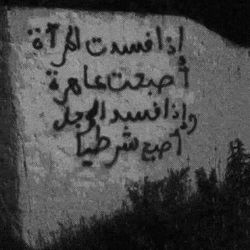 إذا فسدت المرآة
أصبحت عاهرة
وإذا فسد الرجل
أصبح شرطيا